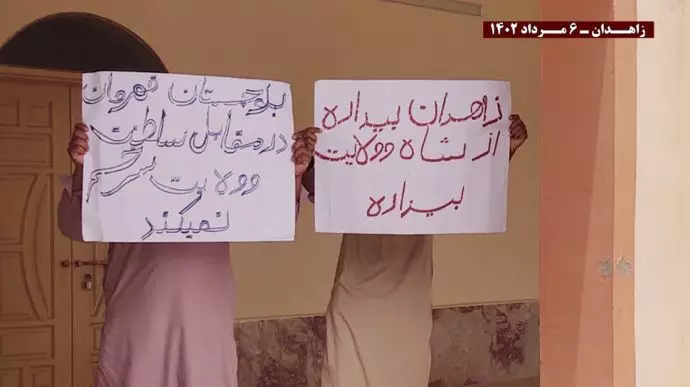 زاهـدان ـ ۶ مـرداد ۱۴۰۲
بلوچستان قهرمان
در مقابل سلطنت
و ولایت سر خم
نمیکند
زاهدان بیداره
از شاه و ولایت
بیزاره